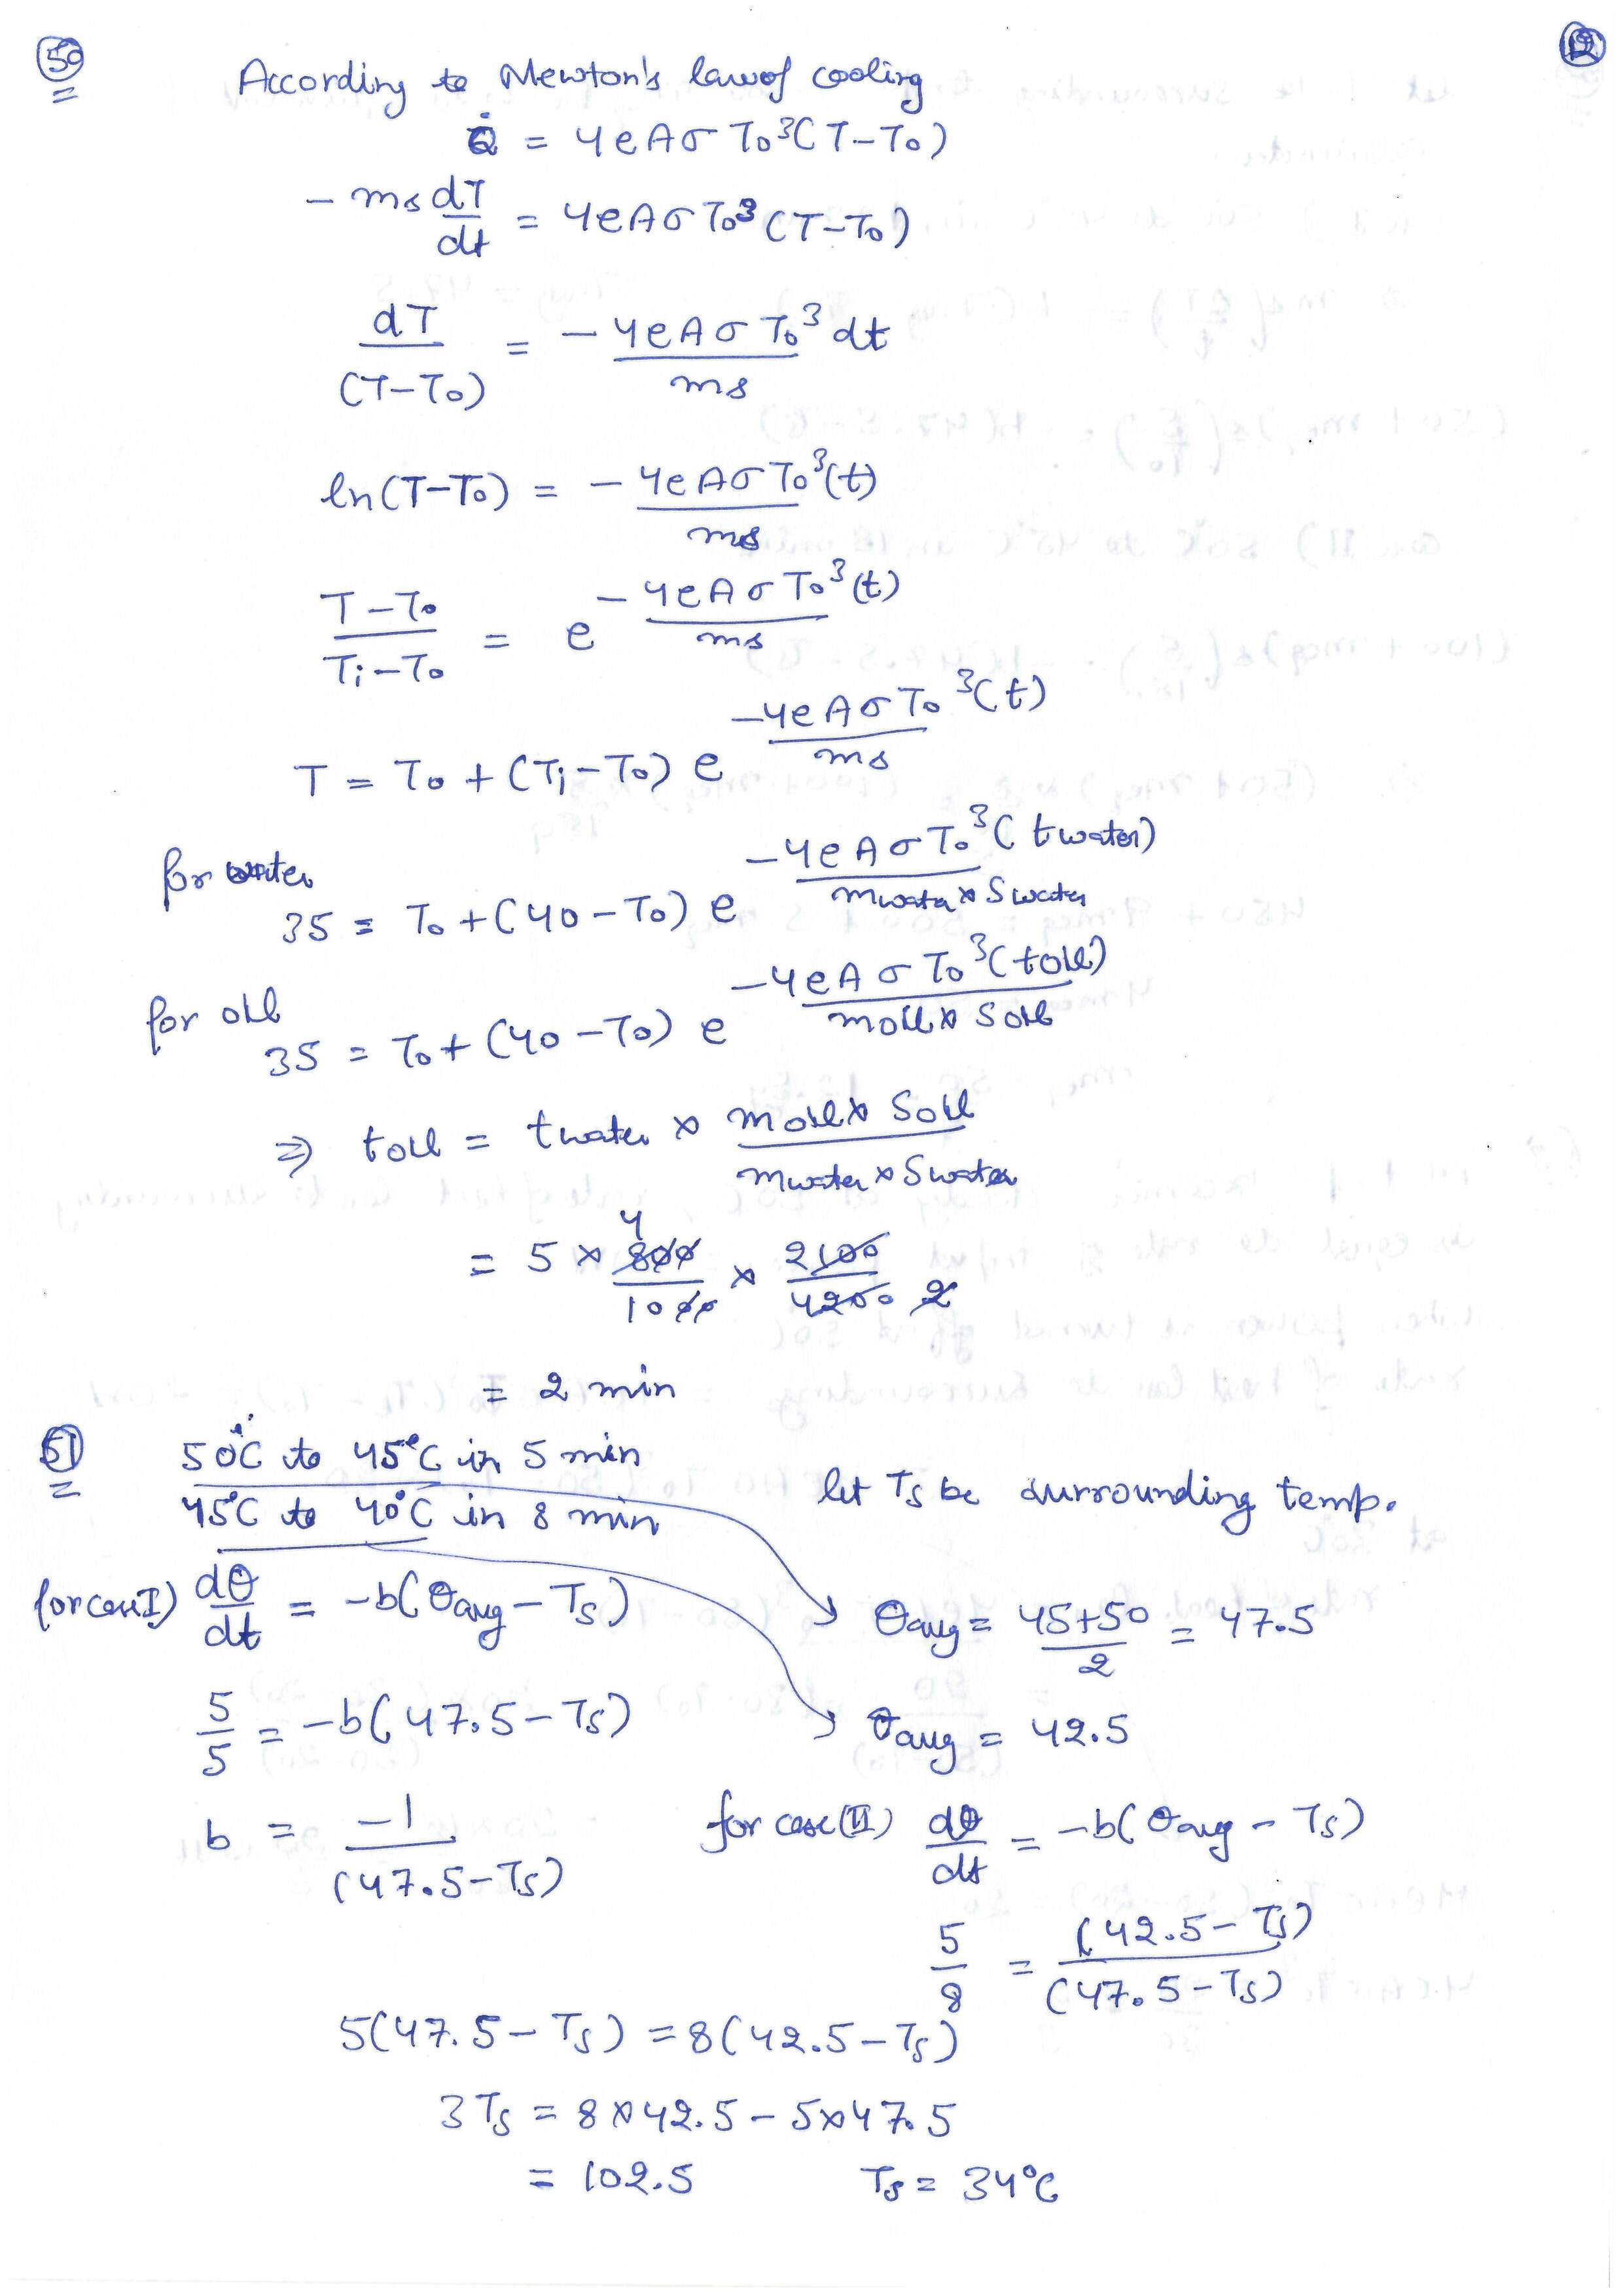 50
12
According to Newton's law of cooling
Q̇ = 4eAσ T₀³(T–T₀)
– ms dT/dt = 4eAσT₀³ (T–T₀)
dT/(T–T₀) = – 4eAσT₀³/ms dt
ln(T–T₀) = – 4eAσT₀³(t)/ms
(T–T₀)/(Tᵢ–T₀) = e^(– 4eAσT₀³(t)/ms)
T = T₀ + (Tᵢ–T₀) e^(–4eAσT₀³(t)/ms)
for water
35 = T₀ + (40 – T₀) e^(–4eAσT₀³(twater)/mwater × Swater)
for oil
35 = T₀ + (40 – T₀) e^(–4eAσT₀³(toil)/moil × Soil)
⇒ toil = twater × moil × Soil/mwater × Swater
= 5 × 800/1000 × 2100/4200 4 2
= 2 min
51
50°C to 45°C in 5 min
let Ts be surrounding temp.
45°C to 40°C in 8 min
for case I) dθ/dt = –b(θavg – Ts)
θavg = (45+50)/2 = 47.5
5/5 = –b(47.5 – Ts)
θavg = 42.5
b = –1/(47.5–Ts)
for case (II) dθ/dt = –b(θavg – Ts)
5/8 = (42.5 – Ts)/(47.5 – Ts)
5(47.5 – Ts) = 8(42.5 – Ts)
3Ts = 8×42.5 – 5×47.5
= 102.5 Ts = 34°C